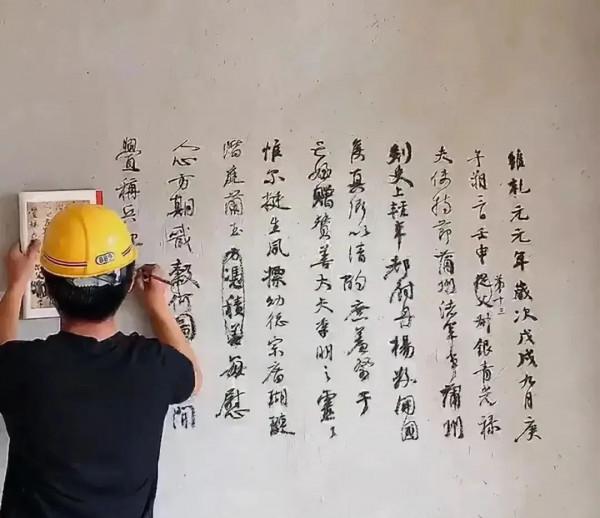 維乾元元年歲次戊戌九月庚
午朔三日壬申第十三從父叔銀青光祿
夫使持節蒲州諸軍事蒲州
刺史上輕車都尉丹楊縣開國
侯真卿以清酌庶羞祭于
亡姪贈贊善大夫季明之靈曰
惟爾挺生夙標幼德宗廟瑚璉
階庭蘭玉方憑積善每慰
人心方期戩穀何圖間
釁稱兵